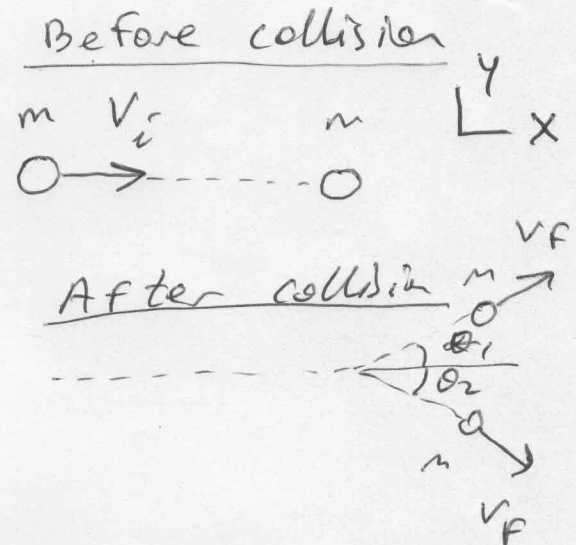 Before collision
m Vi m
Y
X
After collision
m VF
θ1
θ2
m
VF